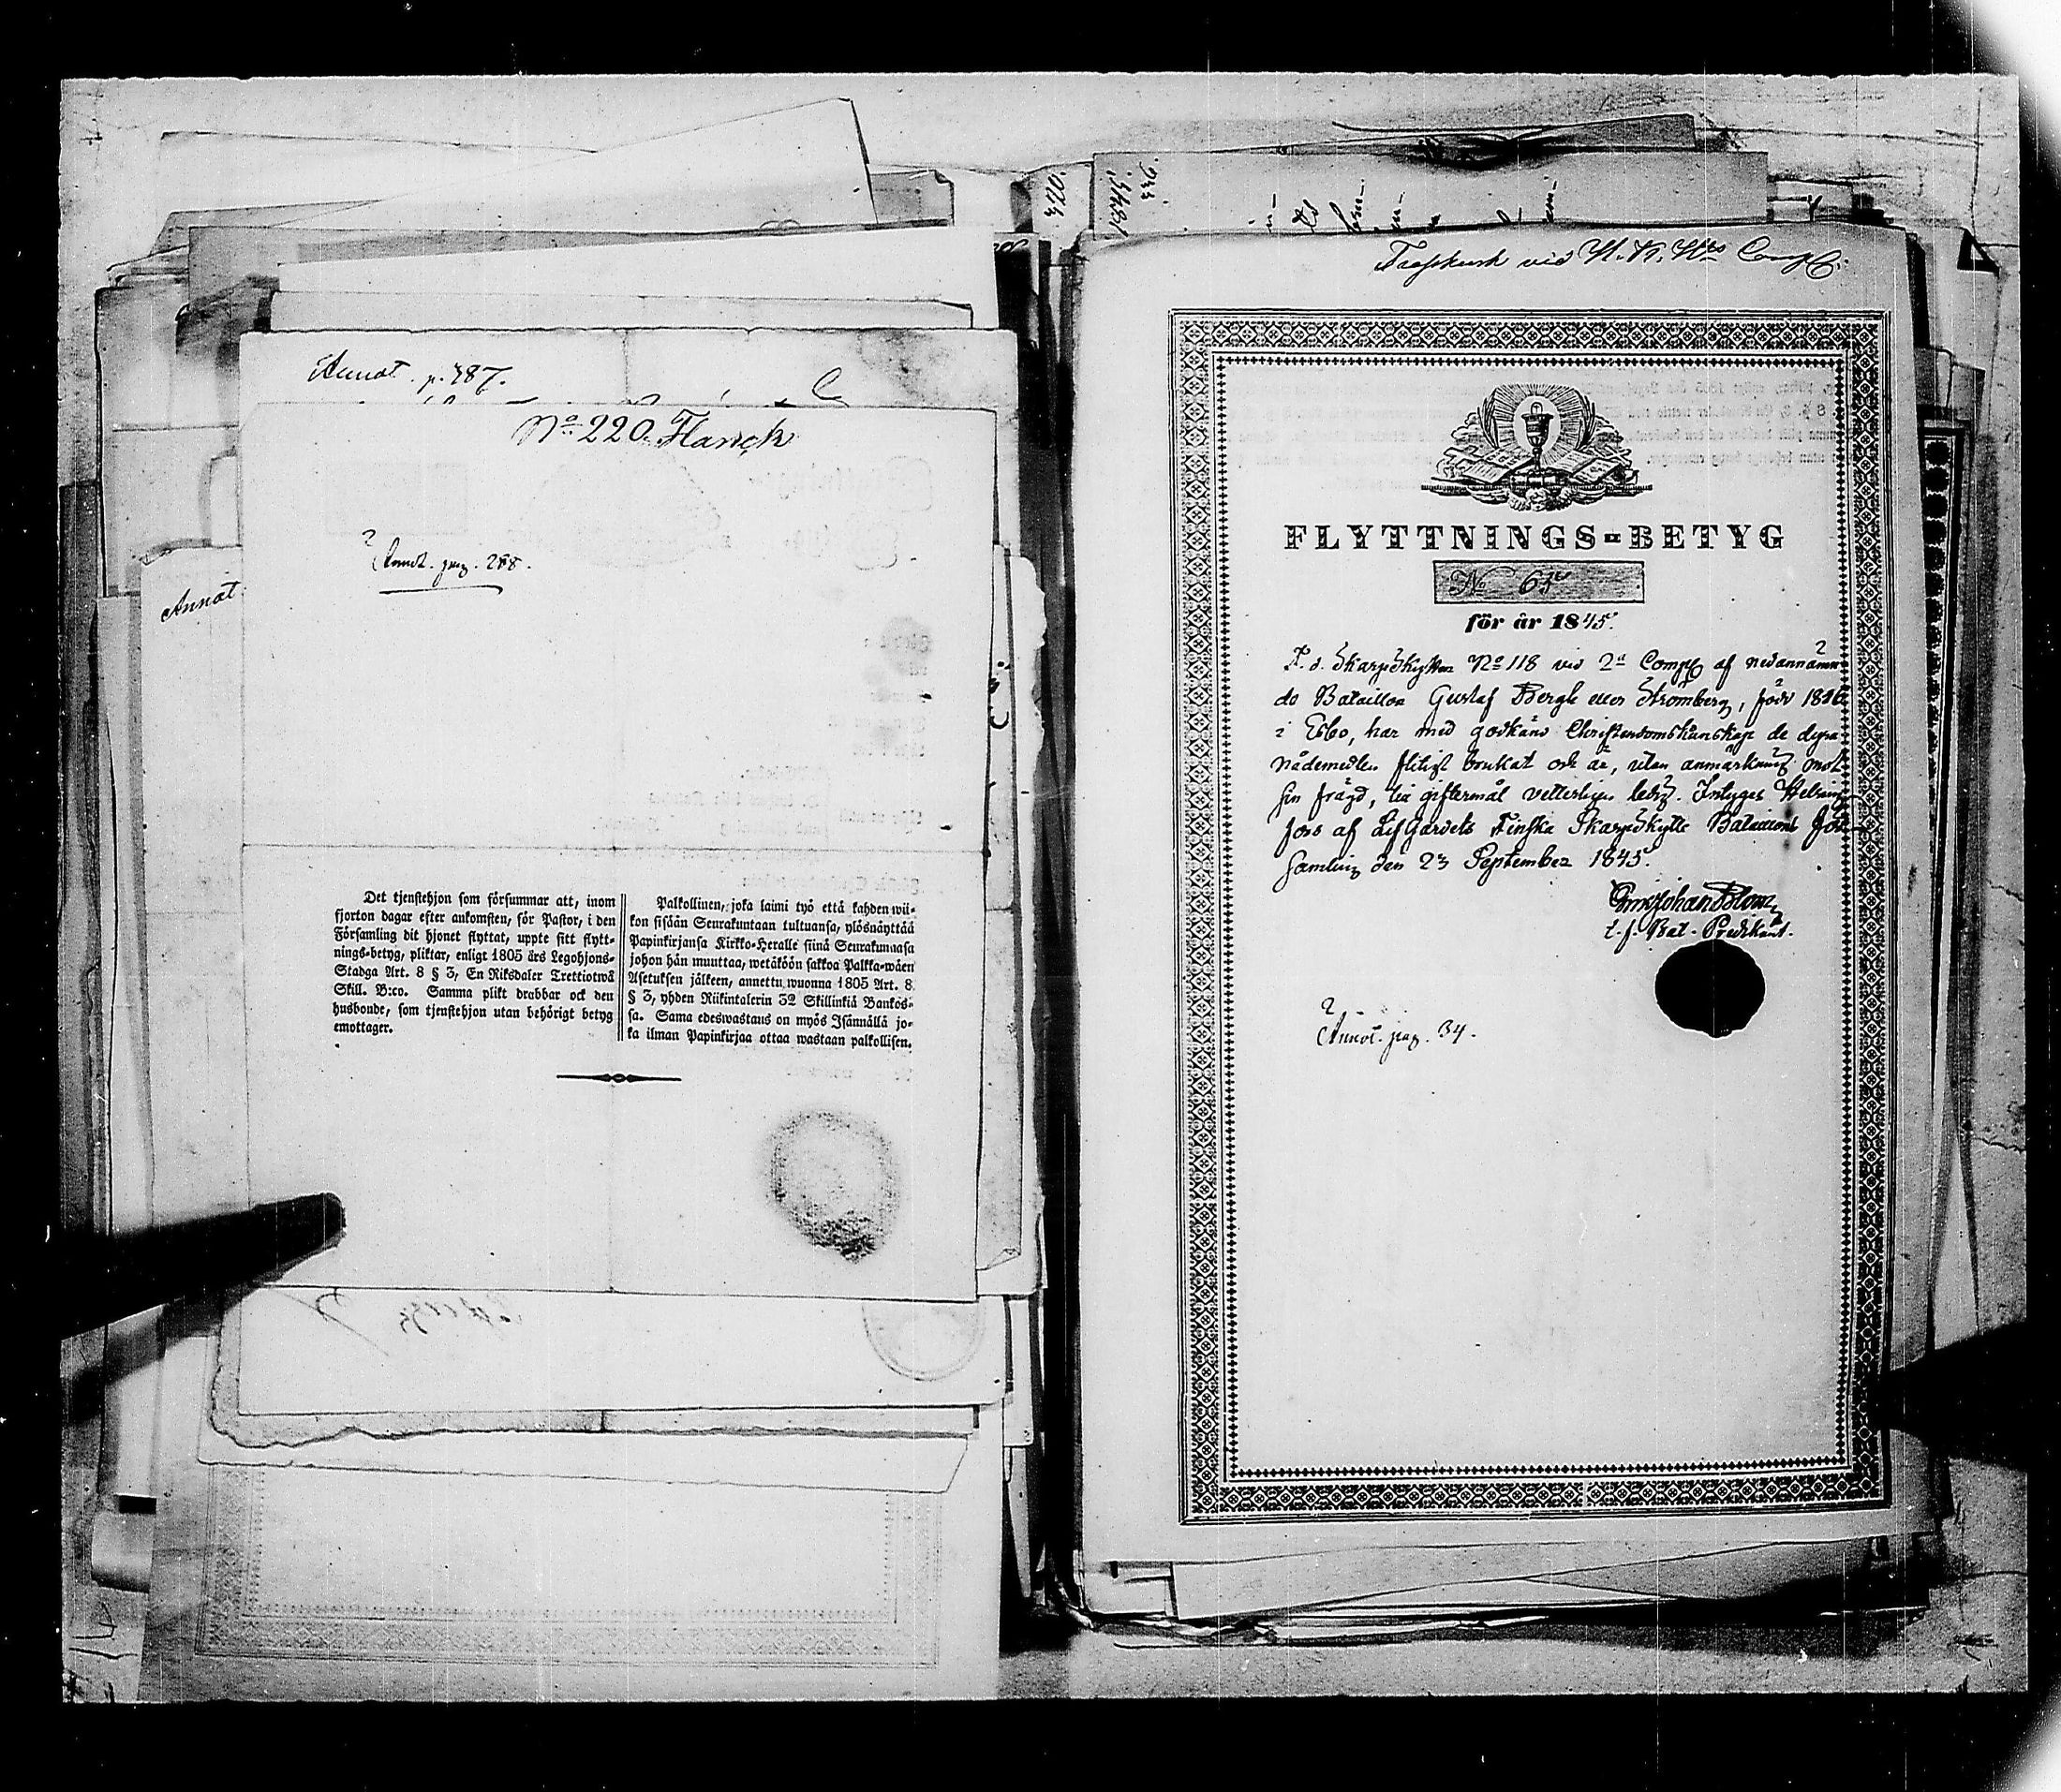 Annot. p. 787.
No 220. Hanck
Annot. pag. 288.
Annot.
Det tjenstehjon som försummar att, inom
fjorton dagar efter ankomsten, för Pastor, i den
Församling dit hjonet flyttat, uppte sitt flytt-
nings-betyg, pliktar, enligt 1805 års Legohjons-
Stadga Art. 8 § 3, En Riksdaler Trettiotwå
Skill. B:co. Samma plikt drabbar ock den
husbonde, som tjenstehjon utan behörigt betyg
emottager.
Palkollinen, joka laimi työ että kahden wii-
kon sisään Seurakuntaan tultuansa, ylösnäyttää
Papinkirjansa Kirkko-Herralle siinä Seurakunnasa
johon hän muuttaa, wetäköön sakkoa Palkka-wäen
Asetuksen jälkeen, annettu wuonna 1805 Art. 8
§ 3, yhden Riikintalerin 32 Skillinkiä Bankos-
sa. Sama edeswastaus on myös Isännällä jo-
ka ilman Papinkirjaa ottaa wastaan palkollisen.
320.
1845.
336.
vid Comp.
FLYTTNINGS-BETYG
No 65
för år 1845.
F. d. Skarpskytten No 118 vid 2a Comp af nedannämn
de Bataillon Gustaf Bergh eller Strömberg, född 1816
i Esbo, har med godkänd Christendomskunskap de dyra
nådemedlen flitigt brukat och är, utan anmärkning mot
sin frägd, till giftermål vetterligen ledig. Intygas Helsing
fors af Lif Gardets Finska Skarpskytte Bataillons För
samling den 23 September 1845.
Johan Blom
t. f. Bat. Predikant.
Annot. pag. 34.